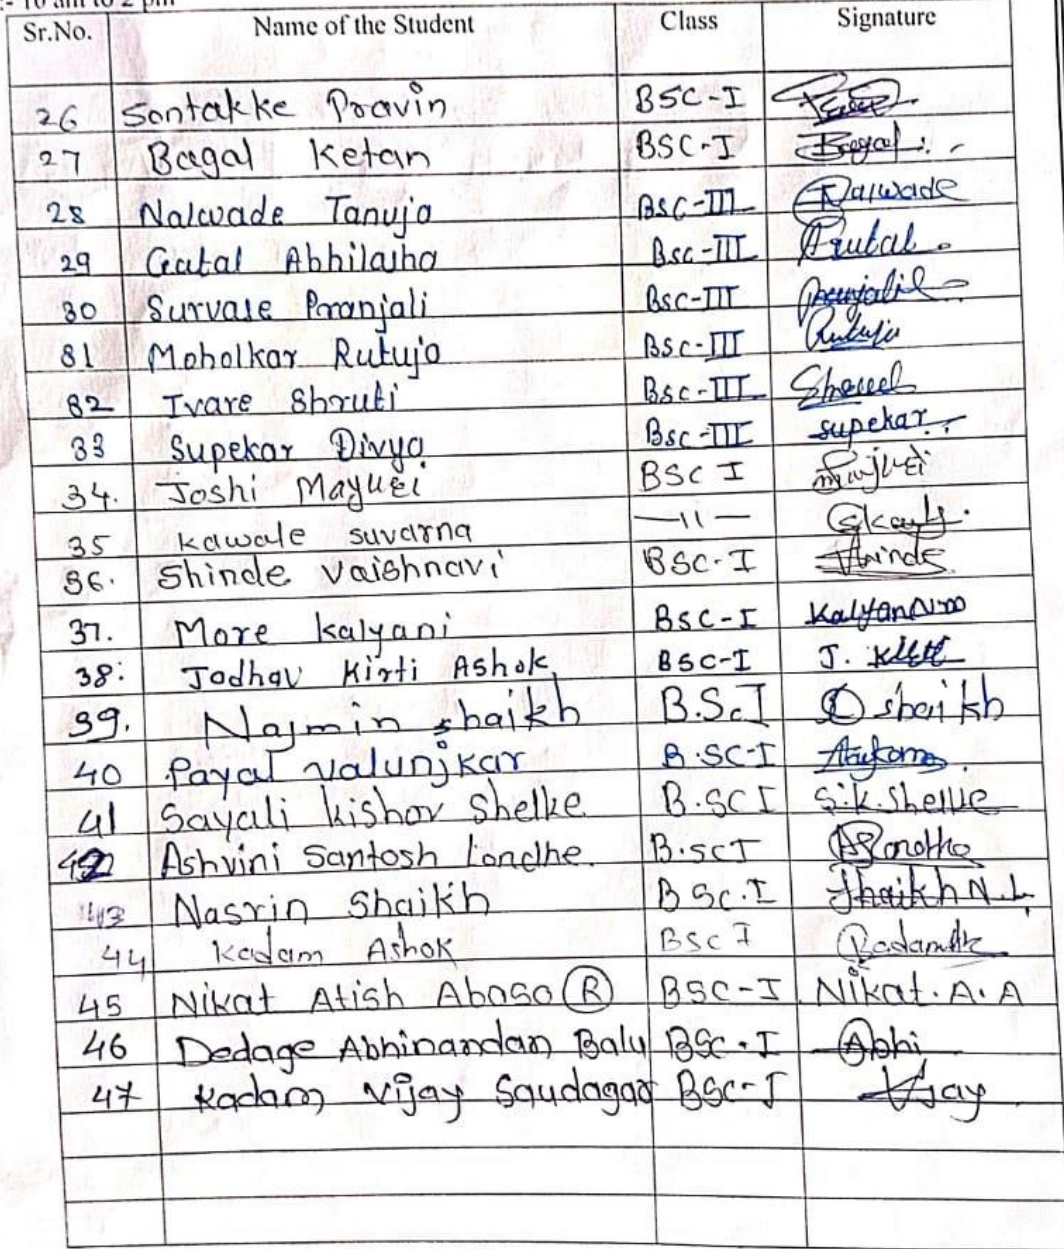 :- 10 am to 2 pm
Sr.No. Name of the Student Class Signature
26 Sontakke Pravin BSC-I
27 Bagal Ketan BSC-I Bagal
28 Nalwade Tanuja BSC-III Nalwade
29 Gatal Abhilasha BSC-III
30 Survase Pranjali BSC-III Pranjali
31 Moholkar Rutuja BSC-III Rutuja
32 Ivare Shruti BSC-III
33 Supekar Divya BSC-III supekar
34. Joshi Mayuri BSC I
35 kawale suvarna —11—
36. Shinde Vaishnavi BSC-I Shinde
37. More kalyani BSC-I
38: Jadhav Kirti Ashok BSC-I J. Kirti
39. Najmin shaikh B.Sc.I shaikh
40 Payal valunjkar B.SC-I
41 Sayali kishor Shelke B.SC I S.K.Shelke
42 Ashvini Santosh Londhe. B.SCI
43 Nasrin Shaikh B Sc.I Shaikh N.
44 kadam Ashok BSC I
45 Nikat Atish Abaso (R) BSC-I Nikat.A.A
46 Dedage Abhinandan Balu BSC-I Abhi
47 kadam Vijay Saudagar BSC-I Vijay